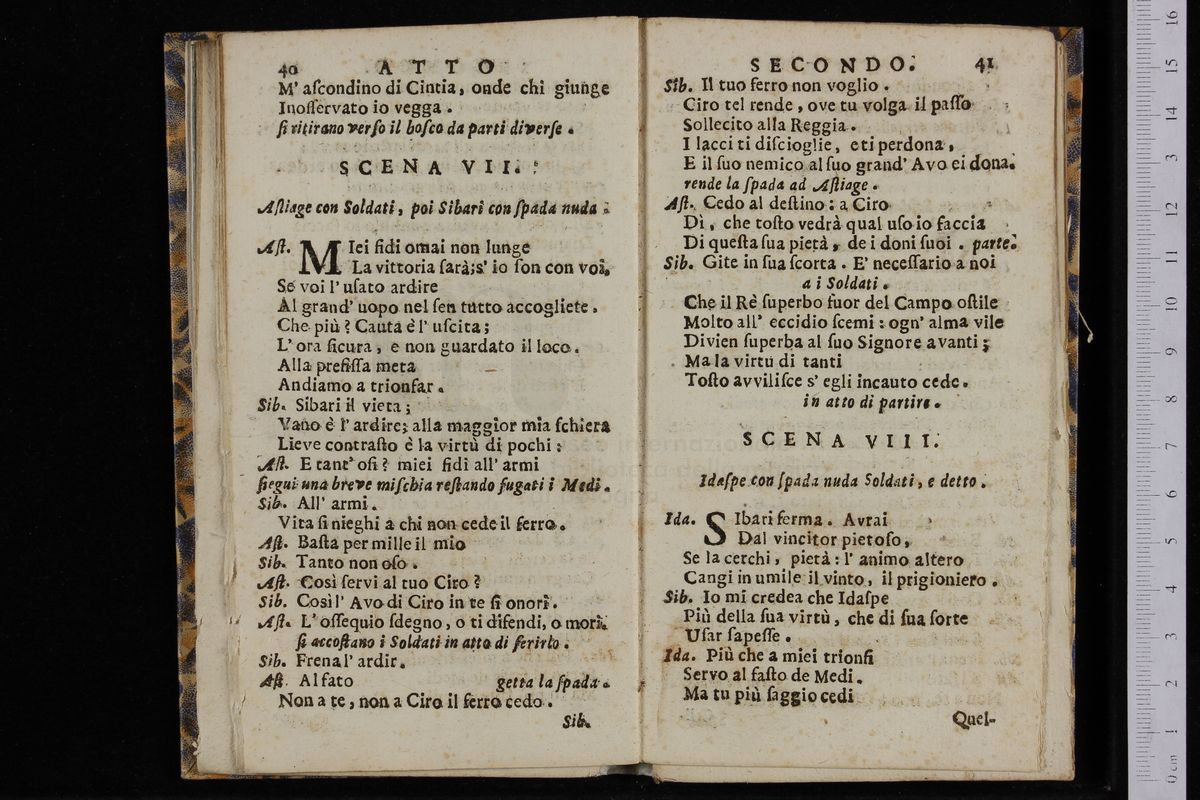 40 ATTO
M' aſcondino di Cintia, onde chi giunge
Inoſſervato io vegga.
ſi ritirano verſo il boſco da parti diverſe.
SCENA VII.
Aſtiage con Soldati, poi Sibari con ſpada nuda.
Aſt. MIei fidi omai non lunge
La vittoria ſarà; s' io ſon con voi,
Se voi l' uſato ardire
Al grand' uopo nel ſen tutto accogliete.
Che più? Cauta è l' uſcita;
L' ora ſicura, e non guardato il loco.
Alla prefiſſa meta
Andiamo a trionfar.
Sib. Sibari il vieta;
Vano è l' ardire; alla maggior mia ſchiera
Lieve contraſto è la virtù di pochi:
Aſt. E tant' oſi? miei fidi all' armi
ſiegui una breve miſchia reſtando fugati i Medi.
Sib. All' armi.
Vita ſi nieghi a chi non cede il ferro.
Aſt. Baſta per mille il mio
Sib. Tanto non oſo.
Aſt. Così ſervi al tuo Ciro?
Sib. Così l' Avo di Ciro in te ſi onori.
Aſt. L' oſſequio ſdegno, o ti difendi, o mori.
ſi accoſtano i Soldati in atto di ferirlo.
Sib. Frena l' ardir.
Aſt. Al fato getta la ſpada.
Non a te, non a Ciro il ferro cedo.
Sib.
SECONDO. 41
Sib. Il tuo ferro non voglio.
Ciro tel rende, ove tu volga il paſſo
Sollecito alla Reggia.
I lacci ti diſcioglie, e ti perdona,
E il ſuo nemico al ſuo grand' Avo ei dona.
rende la ſpada ad Aſtiage.
Aſt. Cedo al deſtino: a Ciro
Dì, che toſto vedrà qual uſo io faccia
Di queſta ſua pietà, de i doni ſuoi. parte.
Sib. Gite in ſua ſcorta. E' neceſſario a noi
a i Soldati.
Che il Rè ſuperbo fuor del Campo oſtile
Molto all' eccidio ſcemi: ogn' alma vile
Divien ſuperba al ſuo Signore avanti;
Ma la virtù di tanti
Toſto avviliſce s' egli incauto cede.
in atto di partire.
SCENA VIII.
Idaſpe con ſpada nuda Soldati, e detto.
Ida. SIbari ferma. Avrai
Dal vincitor pietoſo,
Se la cerchi, pietà: l' animo altero
Cangi in umile il vinto, il prigioniero.
Sib. Io mi credea che Idaſpe
Più della ſua virtù, che di ſua ſorte
Uſar ſapeſſe.
Ida. Più che a miei trionfi
Servo al faſto de Medi.
Ma tu più ſaggio cedi
Quel-